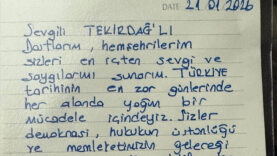 DATE 21.01.2026
Sevgili TEKİRDAĞ'LI
Dostlarım, hemşehrilerim
sizleri en içten sevgi ve
saygılarımı sunarım. TÜRKİYE
tarihinin en zor günlerinde
her alanda yoğun bir
mücadele içindeyiz. Sizler
demokrasi, hukukun üstünlüğü
ve memleketimizin geleceği